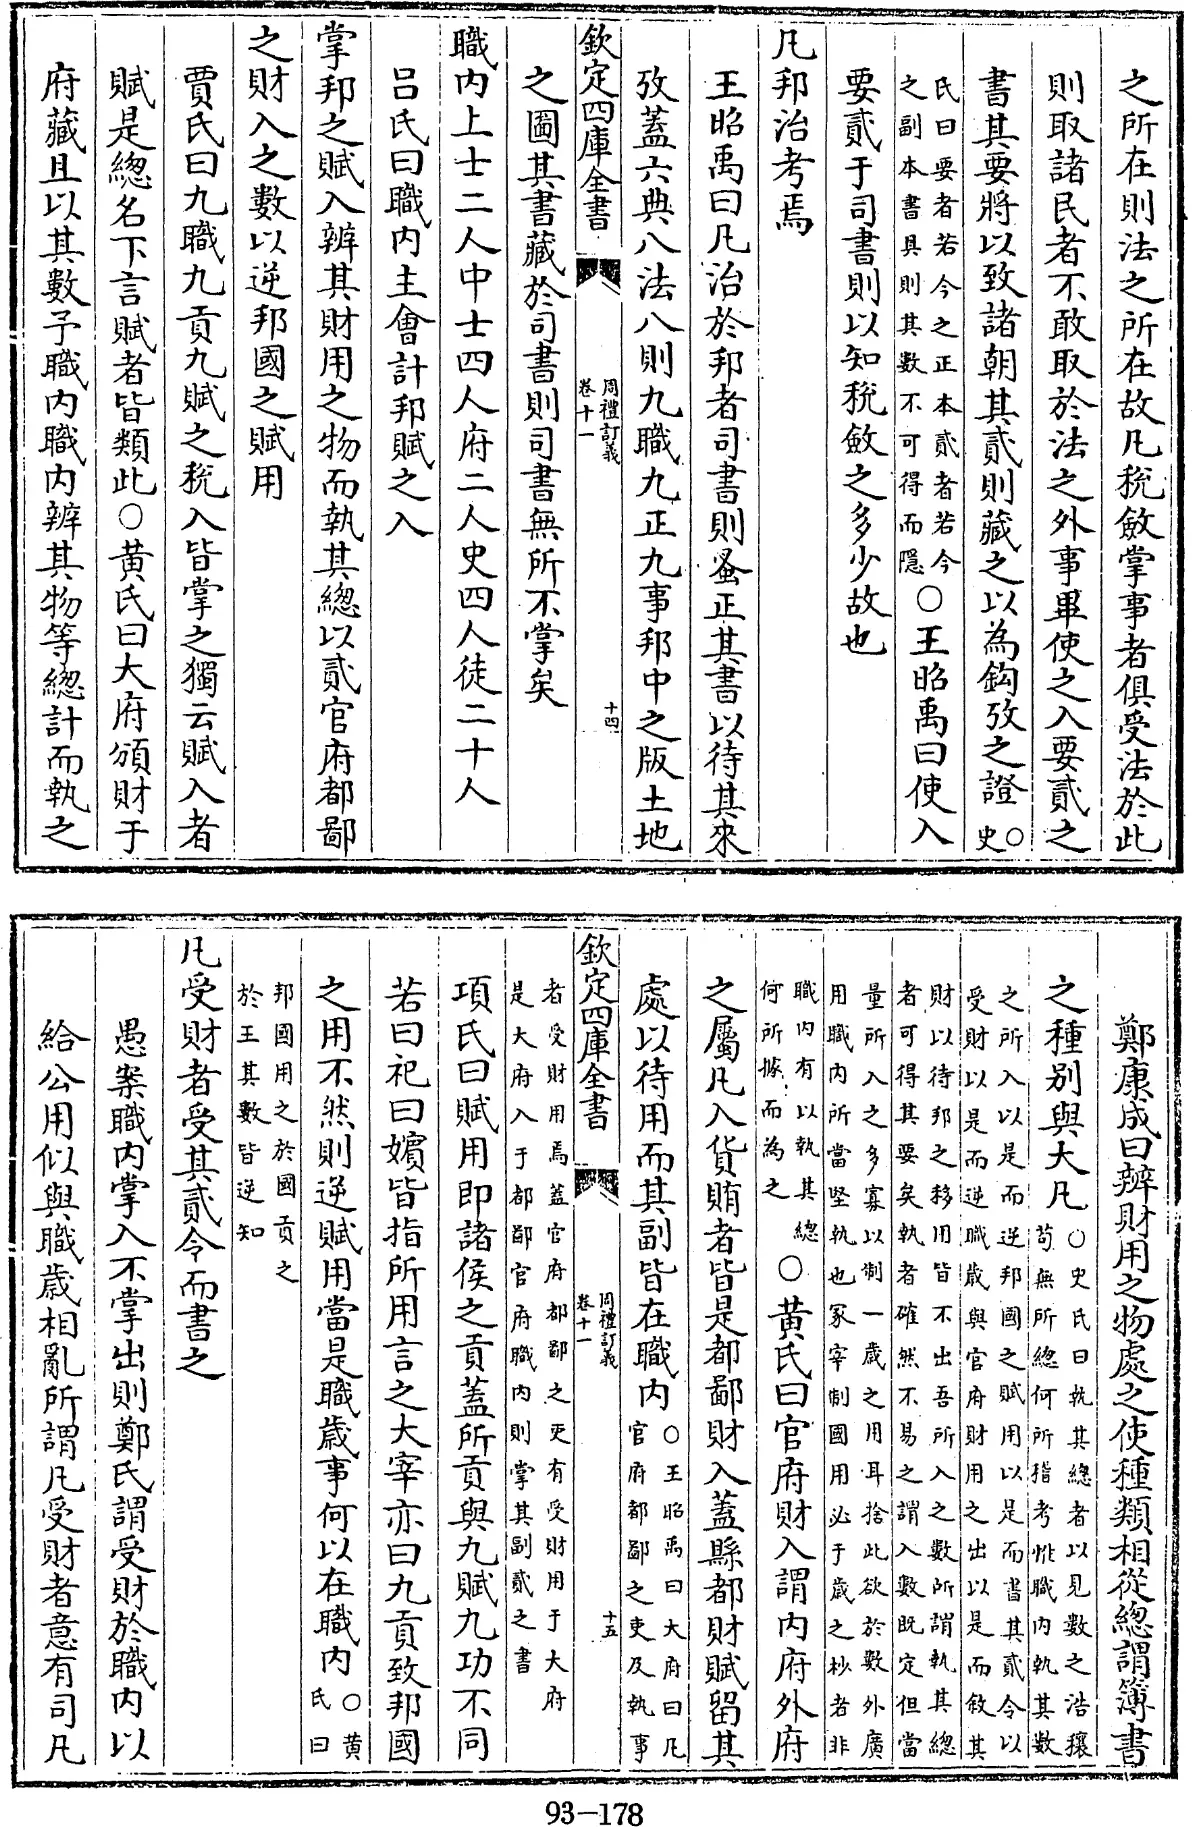 之所在則法之所在故凡稅斂掌事者俱受法於此
則取諸民者不敢取於法之外事畢使之入要貳之
書其要將以致諸朝其貳則藏之以為鈎攷之證○史
氏曰要者若今之正本貳者若今
之副本書具則其數不可得而隱○王昭禹曰使入
要貳于司書則以知稅斂之多少故也
凡邦治考焉
王昭禹曰凡治於邦者司書則蚤正其書以待其來
攷蓋六典八法八則九職九正九事邦中之版土地
欽定四庫全書
周禮訂義
卷十一
十四
之圖其書藏於司書則司書無所不掌矣
職内上士二人中士四人府二人史四人徒二十人
呂氏曰職内主會計邦賦之入
掌邦之賦入辨其財用之物而執其總以貳官府都鄙
之財入之數以逆邦國之賦用
賈氏曰九職九貢九賦之稅入皆掌之獨云賦入者
賦是總名下言賦者皆類此○黄氏曰大府頒財于
府藏且以其數予職内職内辨其物等總計而執之
鄭康成曰辨財用之物處之使種類相從總謂簿書
之種别與大凡○史氏曰執其總者以見數之浩穰
苟無所總何所稽考惟職内執其數
之所入以是而逆邦國之賦用以是而書其貳令以
受財以是而逆職歲與官府財用之出以是而敘其
財以待邦之移用皆不出吾所入之數所謂執其總
者可得其要矣執者確然不易之謂入數既定但當
量所入之多寡以制一歲之用耳捨此欲於數外廣
用職内所當堅執也冢宰制國用必于歲之杪者非
職内有以執其總
何所據而為之○黄氏曰官府財入謂内府外府
之屬凡入貨賄者皆是都鄙財入蓋縣都財賦留其
處以待用而其副皆在職内○王昭禹曰大府曰凡
官府都鄙之吏及執事
欽定四庫全書
周禮訂義
卷十一
十五
者受財用焉蓋官府都鄙之吏有受財用于大府
是大府入于都鄙官府職内則掌其副貳之書
項氏曰賦用即諸侯之貢蓋所貢與九賦九功不同
若曰祀曰嬪皆指所用言之大宰亦曰九貢致邦國
之用不然則逆賦用當是職歲事何以在職内○黄
氏曰
邦國用之於國貢之
於王其數皆逆知
凡受財者受其貳令而書之
愚案職内掌入不掌出則鄭氏謂受財於職内以
給公用似與職歲相亂所謂凡受財者意有司凡
93-178